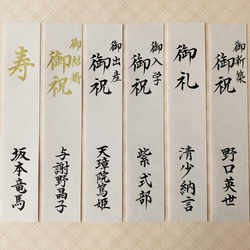 御新築
御祝
野口英世
御礼
清少納言
御入学
御祝
紫式部
御出産
御祝
天璋院篤姫
御結婚
御祝
与謝野晶子
寿
坂本竜馬